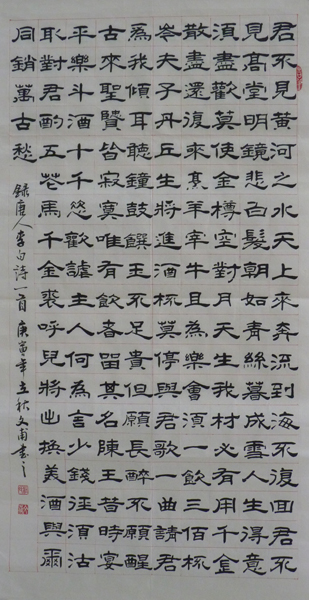 君不見黃河之水天上來奔流到海不復回君不
見高堂明鏡悲白髮朝如青絲暮成雪人生得意
須盡歡莫使金樽空對月天生我材必有用千金
散盡還復來烹羊宰牛且為樂會須一飲三佰杯
岑夫子丹丘生將進酒杯莫停與君歌一曲請君
為我傾耳聽鐘鼓饌玉不足貴但願長醉不願醒
古來聖賢皆寂寞唯有飲者留其名陳王昔時宴
平樂斗酒十千恣歡謔主人何為言少錢徑須沽
取對君酌五花馬千金裘呼兒將出換美酒與爾
同銷萬古愁
錄唐人李白詩一首 庚寅年立秋文甫書之